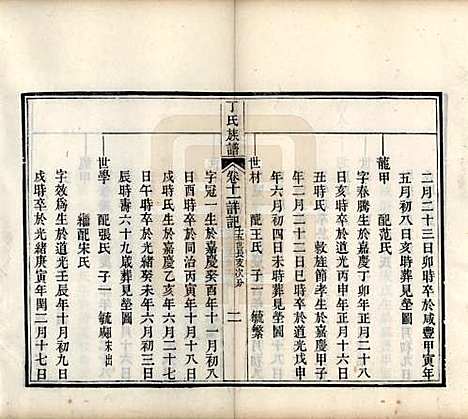 二月二十三日卯時卒於咸豐甲寅年
五月初八日亥時葬見塋圖
龍甲 配范氏
字春騰生於嘉慶丁卯年正月二十八
日亥時卒於道光丙申年正月十六日
丑時氏 敦旌節孝生於嘉慶甲子
年二月二十二日巳時卒於道光戊申
年六月初四日未時葬見塋圖
世材 配王氏 子一 毓繁
丁氏族譜 卷十二譜記 二
字冠一生於嘉慶癸酉年十一月初八
日酉時卒於同治丙寅年十月十八日
戌時氏生於嘉慶乙亥年六月二十七
日午時卒於光緒癸未年六月初三日
辰時壽六十九歲葬見塋圖
世學 配張氏 子一 毓
繼配宋氏
字效爲生於道光壬辰年十月初九日
戌時卒於光緒庚寅年閏二月十七日